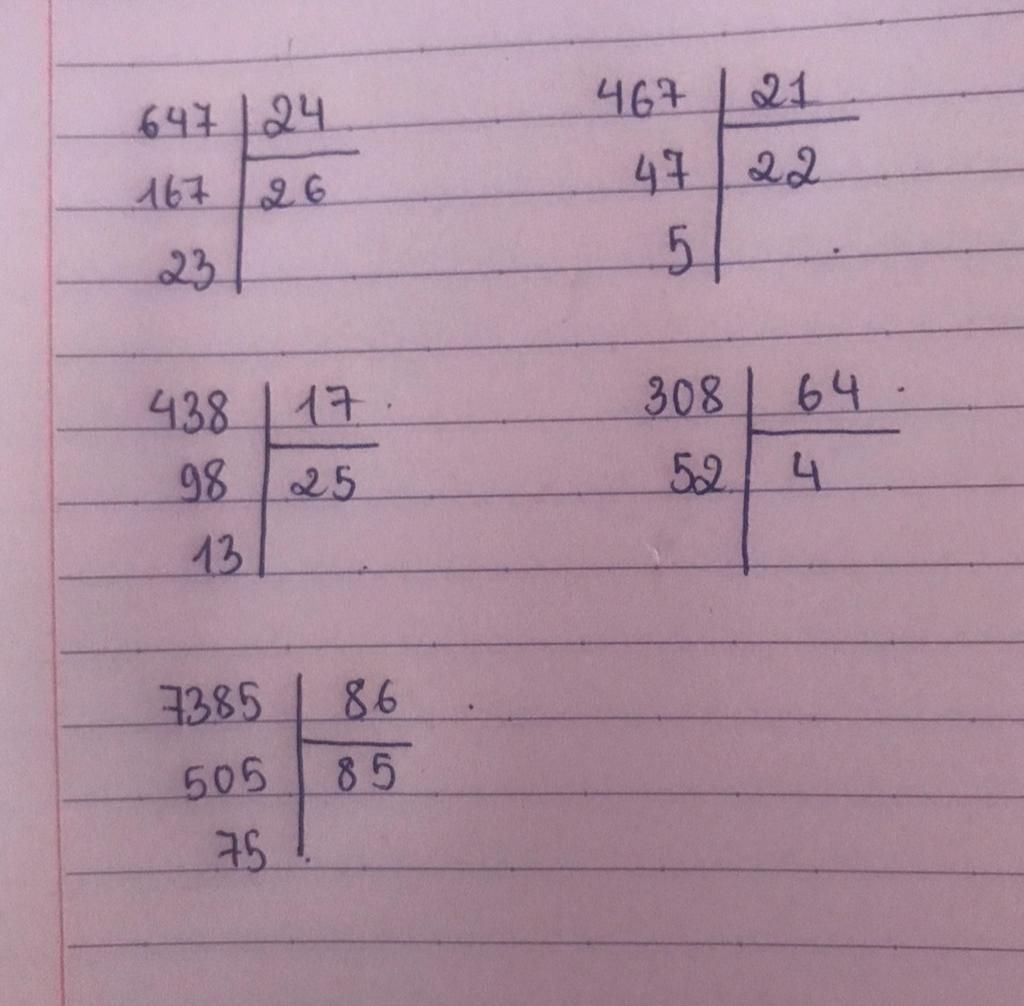 647 24
167 26
23
467 21
47 22
5
438 17
98 25
13
308 64
52 4
7385 86
505 85
75